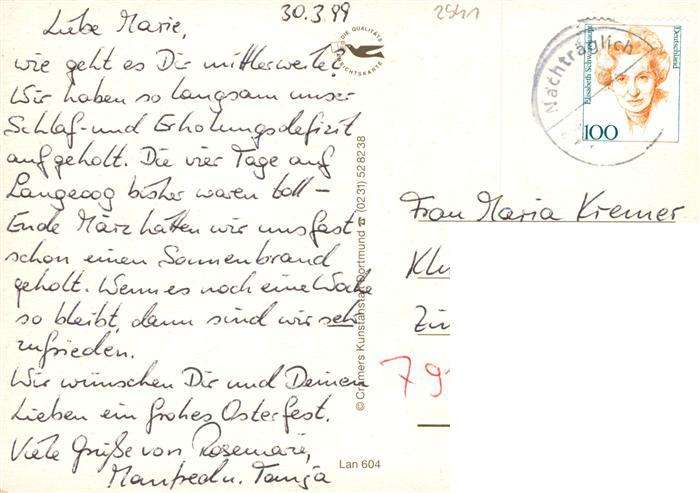 30.3.99
2541
Liebe Marie,
wie geht es Dir mittlerweile?
Wir haben so langsam unser
Schlaf- und Erholungsdefizit
aufgeholt. Die vier Tage auf
Langeoog bisher waren toll –
Ende März hätten wir uns fast
schon einen Sonnenbrand
geholt. Wenn es noch eine Woche
so bleibt, dann sind wir sehr
zufrieden.
Wir wünschen Dir und Deinen
Lieben ein frohes Osterfest.
Viele Grüße von Rosemarie,
Manfred u. Tanja
DIE QUALITÄTS
ANSICHTSKARTE
© Cramers Kunstanstalt Dortmund ☎ (02 31) 52 82 38
Lan 604
Nachträglich
Elisabeth Schwarzhaupt
Deutschland
100
Frau Maria Kremer
79